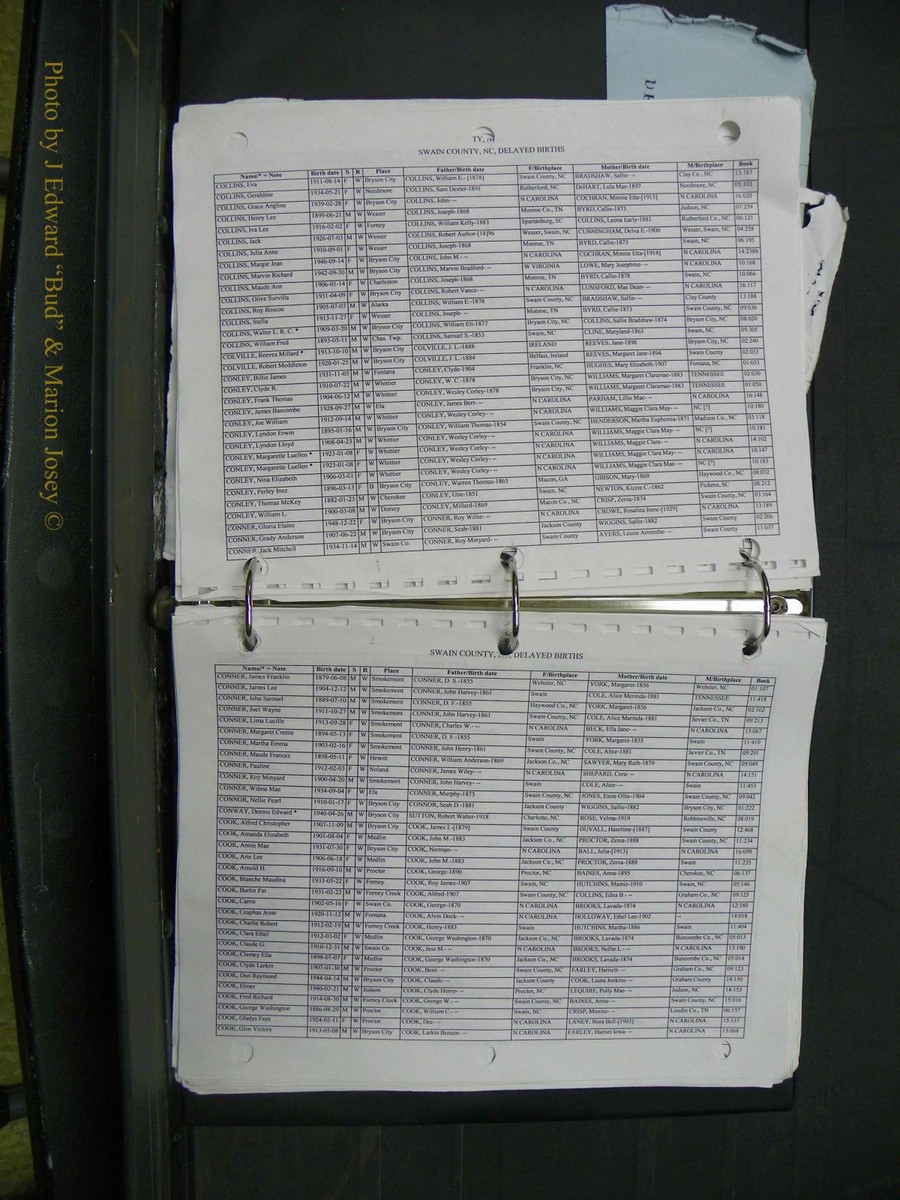 Photo by J Edward "Bud" & Marion Josey ©
TY, N
SWAIN COUNTY, NC, DELAYED BIRTHS
Name/* = Note Birth date S R Place Father/Birth date F/Birthplace Mother/Birth date M/Birthplace Book
COLLINS, Eva 1911-08-14 F W Bryson City COLLINS, William E.-[1878] Swain County, NC BRADSHAW, Sallie- -- Clay Co., NC 13:187
COLLINS, Geraldine 1934-05-21 F W Needmore COLLINS, Sam Dexter-1891 Rutherford, NC DeHART, Lula Mae-1897 Needmore, NC 05:103
COLLINS, Grace Angline 1939-02-28 F W Bryson City COLLINS, John- -- N CAROLINA COCHRAN, Minnie Etta-[1915] N CAROLINA 16:020
COLLINS, Henry Lee 1899-06-21 M W Wesser COLLINS, Joseph-1868 Monroe Co., TN BYRD, Callie-1873 Judson, NC 07:259
COLLINS, Iva Lee 1916-02-02 F W Forney COLLINS, William Kelly-1883 Spartanburg, SC COLLINS, Leona Early-1881 Rutherford Co., NC 06:121
COLLINS, Jack 1926-07-03 M W Wesser COLLINS, Robert Author-[18]96 Wesser, Swain, NC CUNNINGHAM, Delva E.-1900 Wesser, Swain, NC 04:258
COLLINS, Julia Anne 1910-09-01 F W Wesser COLLINS, Joseph-1868 Monroe, TN BYRD, Callie-1873 Swain, NC 06:195
COLLINS, Margie Jean 1946-09-14 F W Bryson City COLLINS, John M.- -- N CAROLINA COCHRAN, Minnie Etta-[1914] N CAROLINA
COLLINS, Marvin Richard 1942-09-30 M W Bryson City COLLINS, Marvin Bradford- -- W VIRGINIA LOWE, Mary Josephine- -- N CAROLINA 10:168
COLLINS, Maude Ann 1906-01-14 F W Charleston COLLINS, Joseph-1868 Monroe, TN BYRD, Callie-1878 Swain, NC 10:066
COLLINS, Olive Survilla 1931-04-09 F W Bryson City COLLINS, Robert Vance- -- N CAROLINA LUNSFORD, Mae Dean- -- N CAROLINA 16:117
COLLINS, Roy Roscoe 1905-07-07 M W Alarka COLLINS, William E.-1878 Swain County, NC BRADSHAW, Sallie- -- Clay County 13:188
COLLINS, Stella 1913-11-27 F W Wesser COLLINS, Joseph- -- Monroe, TN BYRD, Callie-1873 Swain County, NC 09:036
COLLINS, Walter L. R. C. * 1909-03-20 M W Bryson City COLLINS, William Eli-1877 Bryson City, NC COLLINS, Sallie Bradshaw-1874 Bryson City, NC 08:020
COLLINS, William Fred 1893-05-11 M W Chas. Twp. COLLINS, Samuel S.-1853 Swain, NC CLINE, Maryland-1863 Swain, NC 09:305
COLVILLE, Reeves Millard * 1913-10-10 M W Bryson City COLVILLE, J. L.-1888 IRELAND REEVES, Jane-1898 Bryson City, NC 02:240
COLVILLE, Robert Meddleton 1920-01-25 M W Bryson City COLVILLE, J. L.-1884 Belfast, Ireland REEVES, Margaret Jane-1894 Swain County 02:033
CONLEY, Billie James 1931-11-05 M W Fontana CONLEY, Clyde-1904 Franklin, NC HUGHES, Mary Elizabeth-1907 Fontana, NC 01:033
CONLEY, Clyde R. 1910-07-22 M W Whittier CONLEY, W. C.-1878 Bryson City, NC WILLIAMS, Margaret Claramae-1883 TENNESSEE 02:030
CONLEY, Frank Thomas 1904-06-12 M W Whittier CONLEY, Wesley Corley-1878 Bryson City, NC WILLIAMS, Margaret Claramae-1883 TENNESSEE 07:050
CONLEY, James Bascombe 1928-09-27 M W Ela CONLEY, James Bert- -- N CAROLINA PARHAM, Lillie Mae- -- N CAROLINA 16:148
CONLEY, Joe William 1912-09-14 M W Whittier CONLEY, Wesley Corley- -- N CAROLINA WILLIAMS, Maggie Clara May- -- NC [?] 10:180
CONLEY, Lyndon Erwin 1895-01-16 M W Bryson City CONLEY, William Thomas-1854 Swain County, NC HENDERSON, Martha Euphemia-1871 Madison Co., NC 03:118
CONLEY, Lyndon Lloyd 1908-04-23 M W Whittier CONLEY, Wesley Corley- -- N CAROLINA WILLIAMS, Maggie Clara May- -- NC [?] 10:181
CONLEY, Margarette Luellen * 1923-01-08 F W Whittier CONLEY, Wesley Corley- -- N CAROLINA WILLIAMS, Maggie Clara- -- N CAROLINA 14:102
CONLEY, Margarette Luellen * 1923-01-08 F W Whittier CONLEY, Wesley Corley- -- N CAROLINA WILLIAMS, Maggie Clara May- -- N CAROLINA 10:147
CONLEY, Nina Elizabeth 1906-03-01 F W Whittier CONLEY, Wesley Corley- -- N CAROLINA WILLIAMS, Maggie Clara Mae- -- NC [?] 10:183
CONLEY, Perley Inez 1896-03-13 F B Bryson City CONLEY, Warren Thomas-1865 Macon, GA GIBSON, Mary-1869 Haywood Co., NC 08:032
CONLEY, Thomas McKey 1882-01-23 M W Cherokee CONLEY, Ulse-1851 Swain, NC NEWTON, Kizzie C.-1862 Pickens, SC 08:212
CONLEY, William L. 1900-03-08 M W Dorsey CONLEY, Millard-1869 Macon Co., NC CRISP, Zema-1874 Swain County, NC 03:164
CONNER, Gloria Elaine 1948-12-22 F W Bryson City CONNER, Roy Willie- -- N CAROLINA CROWE, Rosalies Irene-[1929] N CAROLINA 13:189
CONNER, Grady Anderson 1907-06-22 M W Bryson City CONNER, Seab-1881 Jackson County WIGGINS, Sallie-1882 Swain County 02:206
CONNER, Jack Mitchell 1934-11-14 M W Swain Co. CONNER, Roy Minyard- -- Swain County AYERS, Leunie Armintha- -- Swain County 11:037
SWAIN COUNTY, DELAYED BIRTHS
Name/* = Note Birth date S R Place Father/Birth date F/Birthplace Mother/Birth date M/Birthplace Book
CONNER, James Franklin 1879-06-08 M W Smokemont CONNER, D. S.-1855 Webster, NC YORK, Margaret-1856 Webster, NC 01:107
CONNER, James Lee 1904-12-12 M W Smokemont CONNER, John Harvey-1861 Swain COLE, Alice Merinda-1881 TENNESSEE 11:418
CONNER, John Samuel 1889-07-10 M W Smokemont CONNER, D. F.-1855 Haywood Co., NC YORK, Margaret-1856 Jackson Co., NC 02:102
CONNER, Joel Wayne 1911-10-27 M W Smokemont CONNER, John Harvey-1861 Swain County, NC COLE, Alice Marinda-1881 Sevier Co., TN 09:213
CONNER, Lima Lucille 1913-09-28 F W Smokemont CONNER, Charles W.- -- N CAROLINA BECK, Ella Jane- -- N CAROLINA 15:067
CONNER, Margaret Crettie 1894-05-13 F W Smokemont CONNER, D. F.-1855 Swain YORK, Margaret-1855 Swain 11:410
CONNER, Martha Emma 1903-02-16 F W Smokemont CONNER, John Henry-1861 Swain County, NC COLE, Alice-1881 Sevier Co., TN 09:291
CONNER, Maude Frances 1898-05-11 F W Hewitt CONNER, William Anderson-1869 Jackson Co., NC SAWYER, Mary Ruth-1879 Swain County, NC 09:049
CONNER, Pauline 1912-02-03 F W Noland CONNER, James Wiley- -- N CAROLINA SHEPARD, Cora- -- N CAROLINA 14:151
CONNER, Roy Minyard 1900-04-20 M W Smokemont CONNER, John Harvey- -- Swain COLE, Alice- -- Swain 11:453
CONNER, Wilma Mae 1934-09-04 F W Ela CONNER, Murphy-1875 Swain County, NC JONES, Essie Ollie-1904 Swain County, NC 09:042
CONNOR, Nellie Pearl 1910-01-17 F W Bryson City CONNOR, Seab D.-1881 Jackson County WIGGINS, Sallie-1882 Bryson City, NC 01:222
CONWAY, Dennis Edward * 1940-04-26 M W Bryson City SUTTON, Robert Walter-1918 Charlotte, NC ROSE, Velma-1919 Robbinsville, NC 08:019
COOK, Alfred Christopher 1907-11-09 M W Bryson City COOK, James I.-[1879] Swain County DUVALL, Haseltine-[1887] Swain County 12:468
COOK, Amanda Elizabeth 1901-08-04 F W Medlin COOK, John M.-1883 Jackson Co., NC PROCTOR, Zenia-1888 Swain County, NC 11:234
COOK, Annie Mae 1931-07-30 F W Bryson City COOK, Norman- -- N CAROLINA BALL, Julia-[1913] N CAROLINA 16:099
COOK, Arie Lee 1906-06-18 F W Medlin COOK, John M.-1883 Jackson Co., NC PROCTOR, Zenia-1888 Swain 11:235
COOK, Arnold H. 1916-09-10 M W Proctor COOK, George-1890 Proctor, NC BAINES, Anna-1895 Cherokee, NC 06:137
COOK, Blanche Maudina 1933-05-22 F W Forney COOK, Roy James-1907 Swain, NC HUTCHINS, Mamie-1910 Swain, NC 05:146
COOK, Burlin Pal 1931-02-22 M W Forney Creek COOK, Alfred-1907 Swain County, NC COLLINS, Edna B.- -- Graham Co., NC 09:125
COOK, Carrie 1902-05-16 F W Swain Co. COOK, George-1870 N CAROLINA BROOKS, Lavada-1874 N CAROLINA 12:180
COOK, Ceaphas Jesse 1920-11-12 M W Fontana COOK, Alvin Dock- -- N CAROLINA HOLLOWAY, Ethel Lee-1902 -- 14:018
COOK, Charlie Robert 1912-02-19 M W Forney Creek COOK, Henry-1883 Swain HUTCHINS, Martha-1886 Swain 11:404
COOK, Clara Ethel 1912-03-02 F W Medlin COOK, George Washington-1870 Jackson Co., NC BROOKS, Lavada-1874 Buncombe Co., NC 05:013
COOK, Claude G. 1916-12-31 M W Swain Co. COOK, Jess M.- -- N CAROLINA BROOKS, Nellie L.- -- N CAROLINA 13:190
COOK, Clemey Ella 1898-07-07 F W Medlin COOK, George Washington-1870 Jackson Co., NC BROOKS, Lavada-1874 Buncombe Co., NC 05:014
COOK, Clyde Larkin 1907-01-30 M W Proctor COOK, Benj- -- Swain County, NC FARLEY, Harriett- -- Graham Co., NC 09:123
COOK, Don Raymond 1944-04-14 M W Bryson City COOK, Claude- -- Jackson County COOK, Laura Jenkins- -- Graham County 14:150
COOK, Elmer 1940-02-21 M W Judson COOK, Clyde Henry- -- Proctor, NC LEQUIRE, Polly Mae- -- Judson, NC 14:153
COOK, Fred Richard 1914-08-30 M W Forney Creek COOK, George W.- -- Swain County, NC BAINES, Anna- -- Swain County, NC 15:016
COOK, George Washington 1886-08-29 M W Proctor COOK, William C.- -- Swain, NC CRISP, Moxine- -- Loudin Co., TN 06:157
COOK, Gladys Faye 1924-02-11 F W Proctor COOK, Doc- -- N CAROLINA LANEY, Nora Bell-[1903] N CAROLINA 15:137
COOK, Glen Victory 1913-05-08 M W Bryson City COOK, Larkin Benson- -- N CAROLINA FARLEY, Harriet Iowa- -- N CAROLINA 15:068